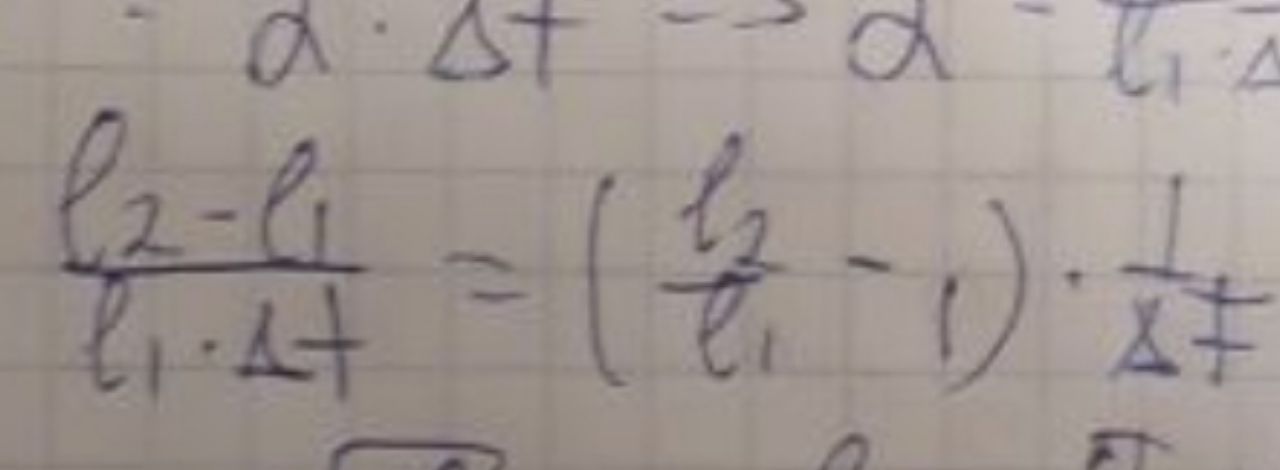 - α · Δt --> α - l₁ · Δ
(l₂ - l₁)/(l₁ · Δt) = (l₂/l₁ - 1) · 1/Δt